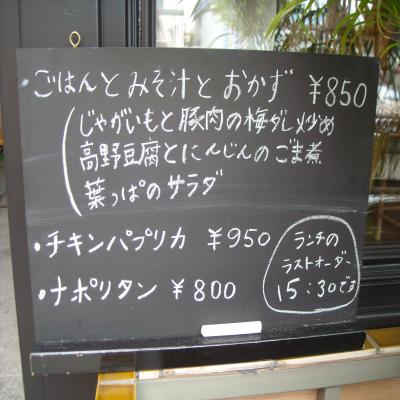 ごはんとみそ汁とおかず ¥850
じゃがいもと豚肉の梅ダレ炒め
高野豆腐とにんじんのごま煮
葉っぱのサラダ
・チキンパプリカ ¥950
・ナポリタン ¥800
ランチの
ラストオーダー
15:30です